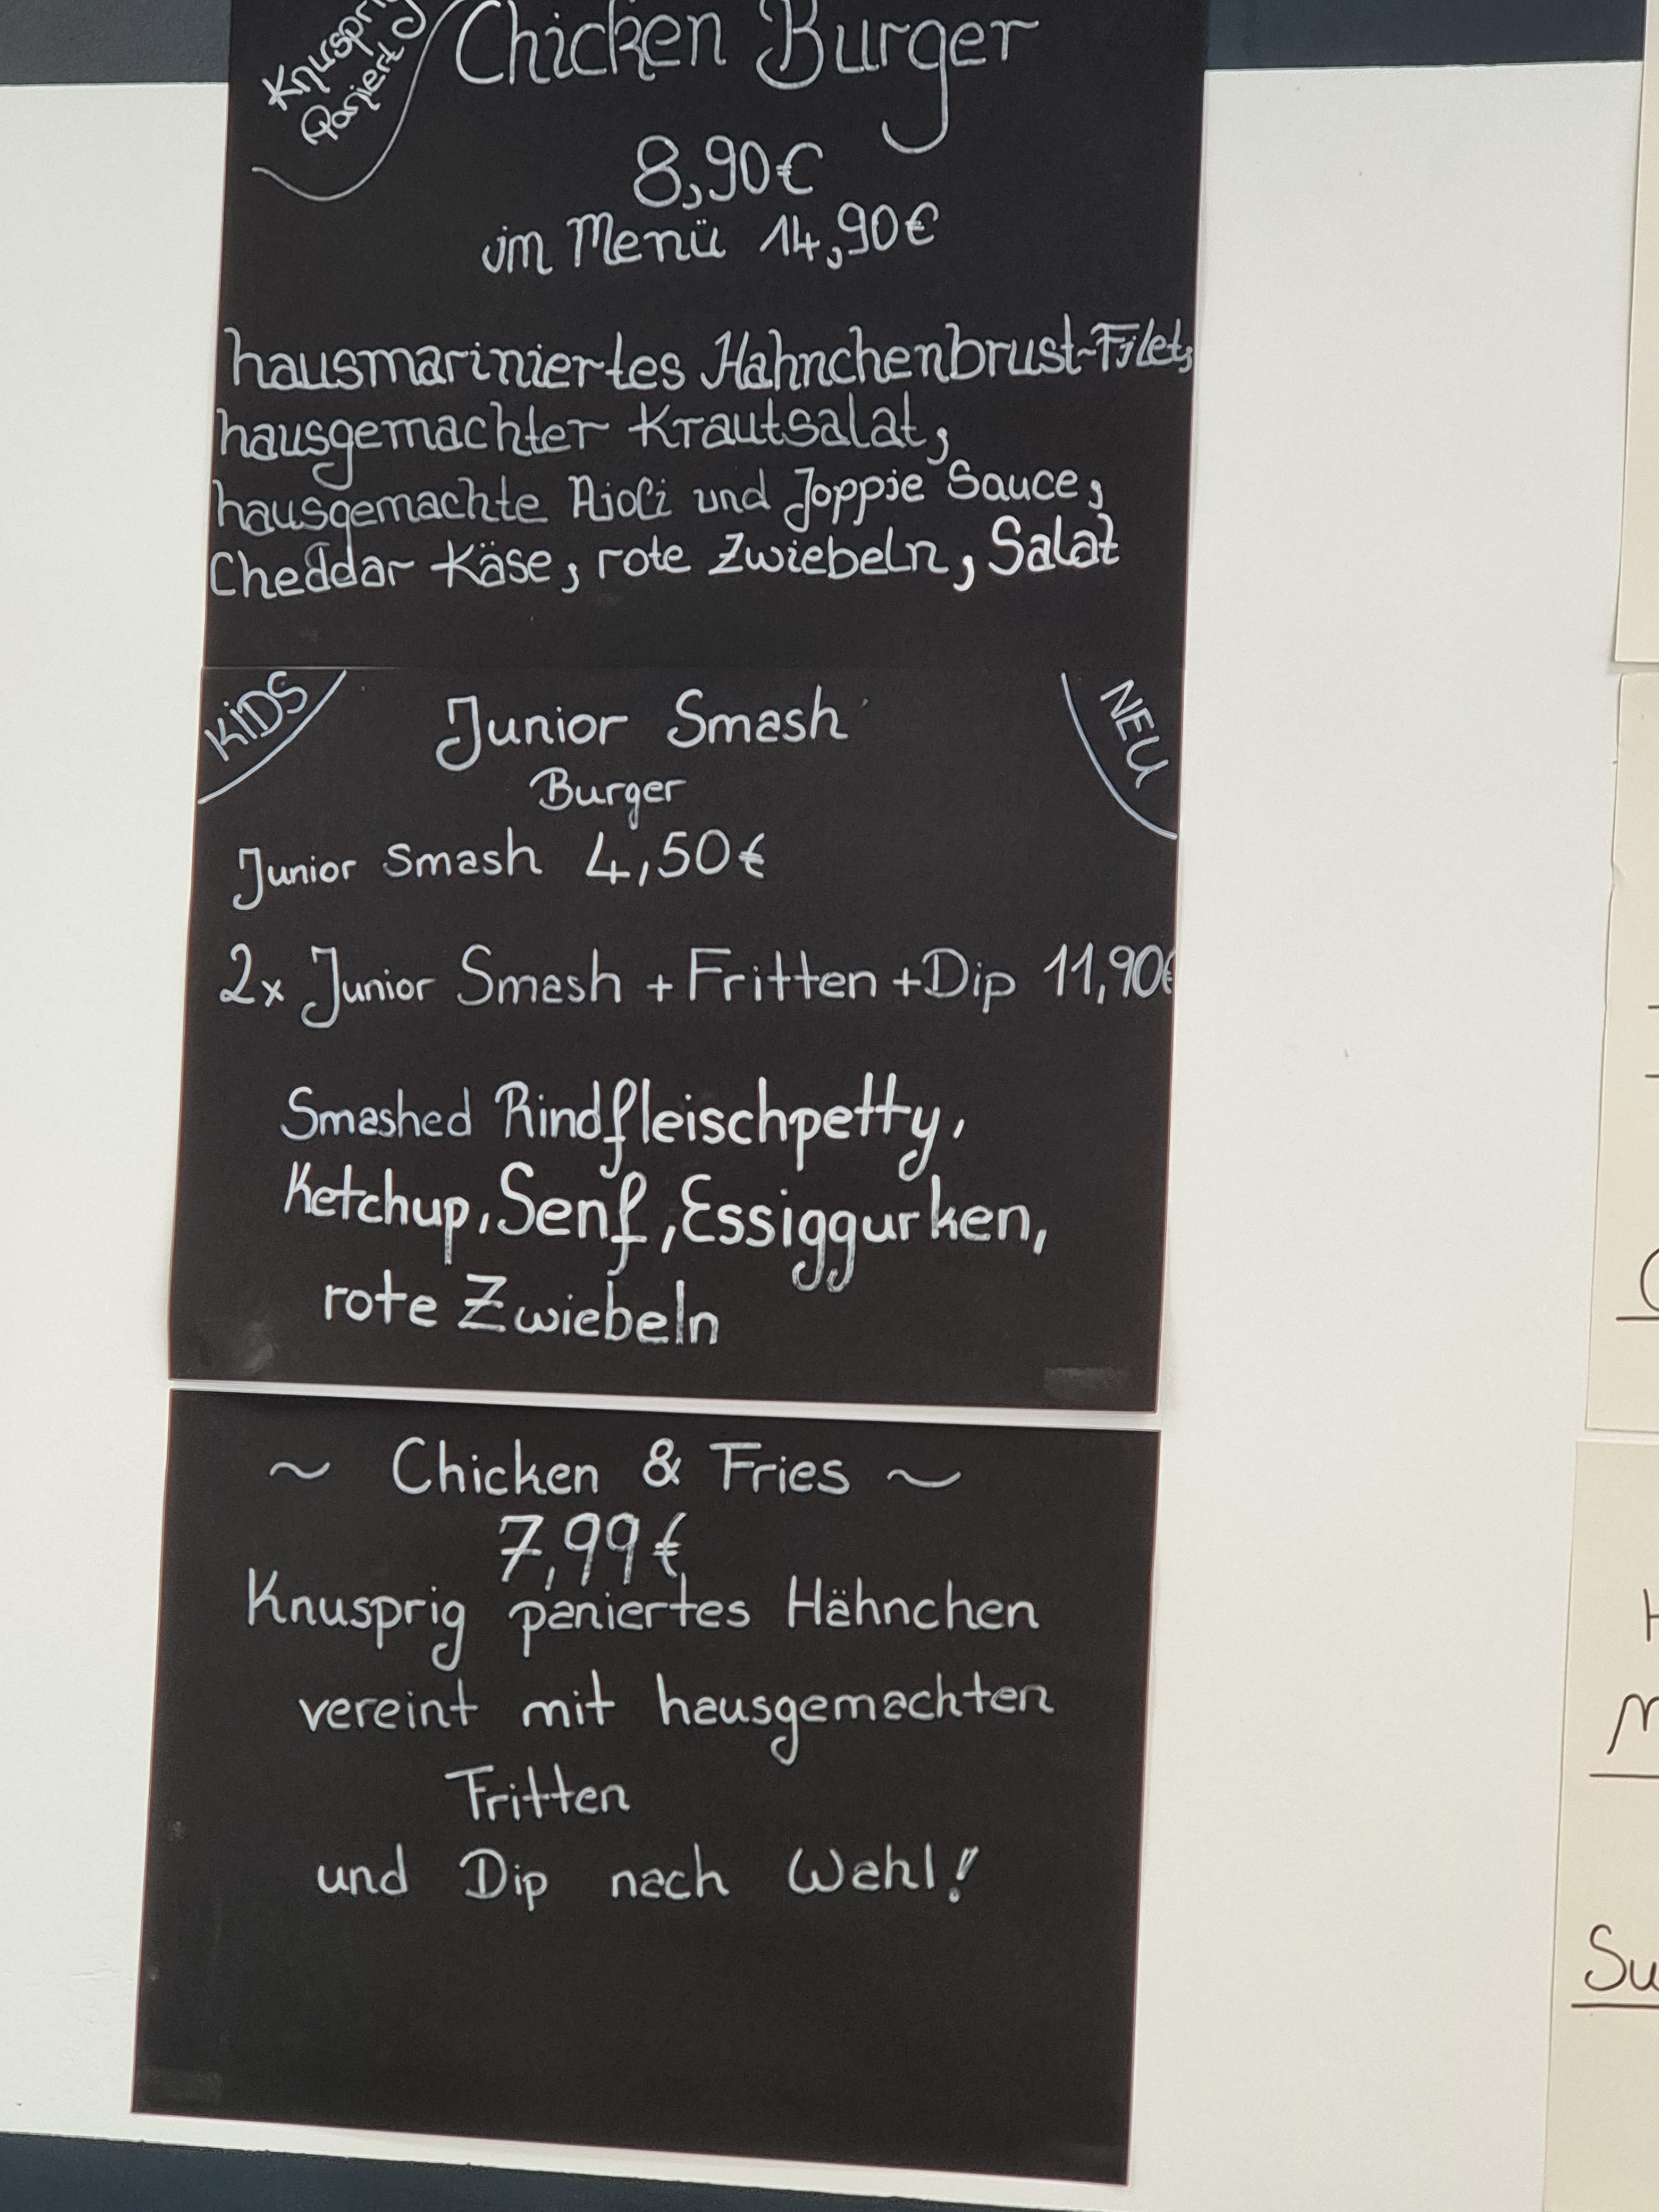 Knusprig
Paniert
Chicken Burger
8,90€
im Menü 14,90€
hausmariniertes Hahnchenbrust-Filet,
hausgemachter Krautsalat,
hausgemachte Aioli und Joppie Sauce,
Cheddar Käse, rote Zwiebeln, Salat
KiDS
NEU
Junior Smash
Burger
Junior Smash 4,50€
2x Junior Smash + Fritten + Dip 11,90€
Smashed Rindfleischpetty,
Ketchup, Senf, Essiggurken,
rote Zwiebeln
~ Chicken & Fries ~
7,99€
Knusprig paniertes Hähnchen
vereint mit hausgemachten
Fritten
und Dip nach Wahl!